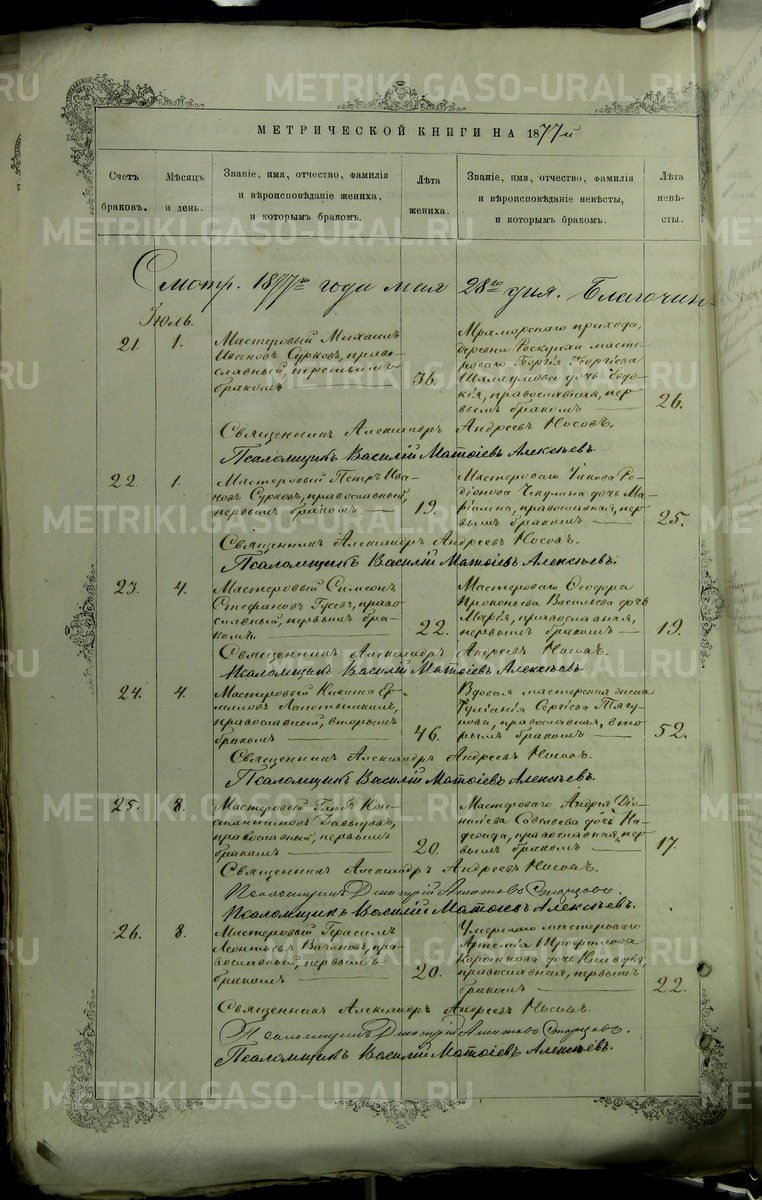 МЕТРИЧЕСКОЙ КНИГИ НА 1877й
Счетъ браковъ.
Мѣсяцъ и день.
Званіе, имя, отчество, фамилія
и вѣроисповѣданіе жениха,
и которымъ бракомъ.
Лѣта жениха.
Званіе, имя, отчество, фамилія
и вѣроисповѣданіе невѣсты,
и которымъ бракомъ.
Лѣта невѣсты.
Смотр. 1877го года мая 28го дня. Благочин-
Іюль.
21. 1.
Мастеровый Михаилъ
Ивановъ Сурковъ, право-
славный, третьимъ
бракомъ
36.
Мраморскаго прихода,
деревни мастерового Георгія Георгіева
дочь Евдо-
кія, православная, пер-
вымъ бракомъ
26.
Священникъ Александръ Андреевъ Носовъ.
Псаломщикъ Василій Матѳіевъ Алексѣевъ
22. 1.
Мастеровый Петръ Ива-
новъ Сурковъ, православный,
первымъ бракомъ
19.
Мастерового Іакова Ро-
діонова дочь Ма-
православная, пер-
вымъ бракомъ
25.
Священникъ Александръ Андреевъ Носовъ.
Псаломщикъ Василій Матѳіевъ Алексѣевъ.
23. 4.
Мастеровый Симеонъ
Стефановъ Гусевъ, право-
славный, первымъ бра-
комъ.
22.
Мастерового Ѳеодора
Прокопьева Васильева дочь
Марія, православная,
первымъ бракомъ
19.
Священникъ Александръ Андреевъ Носовъ.
Псаломщикъ Василій Матѳіевъ Алексѣевъ
24. 4.
Мастеровый Никита Ер-
миловъ
православный, вторымъ
бракомъ
46.
Вдовая мастерская жена
Іуліанія Сергіева Тягу-
нова, православная, вто-
рымъ бракомъ
52.
Священникъ Александръ Андреевъ Носовъ.
Псаломщикъ Василій Матѳіевъ Алексѣевъ.
25. 8.
Мастеровый Глѣбъ Кон-
стантиновъ Давыдовъ,
православный, первымъ
бракомъ
20.
Мастерового Андрея Діо-
нисіева Савельева дочь На-
дежда, православная, пер-
вымъ бракомъ
17.
Священникъ Александръ Андреевъ Носовъ.
Псаломщикъ Димитрій Старцовъ.
Псаломщикъ Василій Матѳіевъ Алексѣевъ.
26. 8.
Мастеровый Герасимъ
Леонтьевъ пра-
вославный, первымъ
бракомъ
20.
Умершаго мастерового
Артемія Трофимова
дочь
православная, первымъ
бракомъ
22.
Священникъ Александръ Андреевъ Носовъ.
Псаломщикъ Димитрій Старцовъ.
Псаломщикъ Василій Матѳіевъ Алексѣевъ.
METRIKI.GASO-URAL.RU